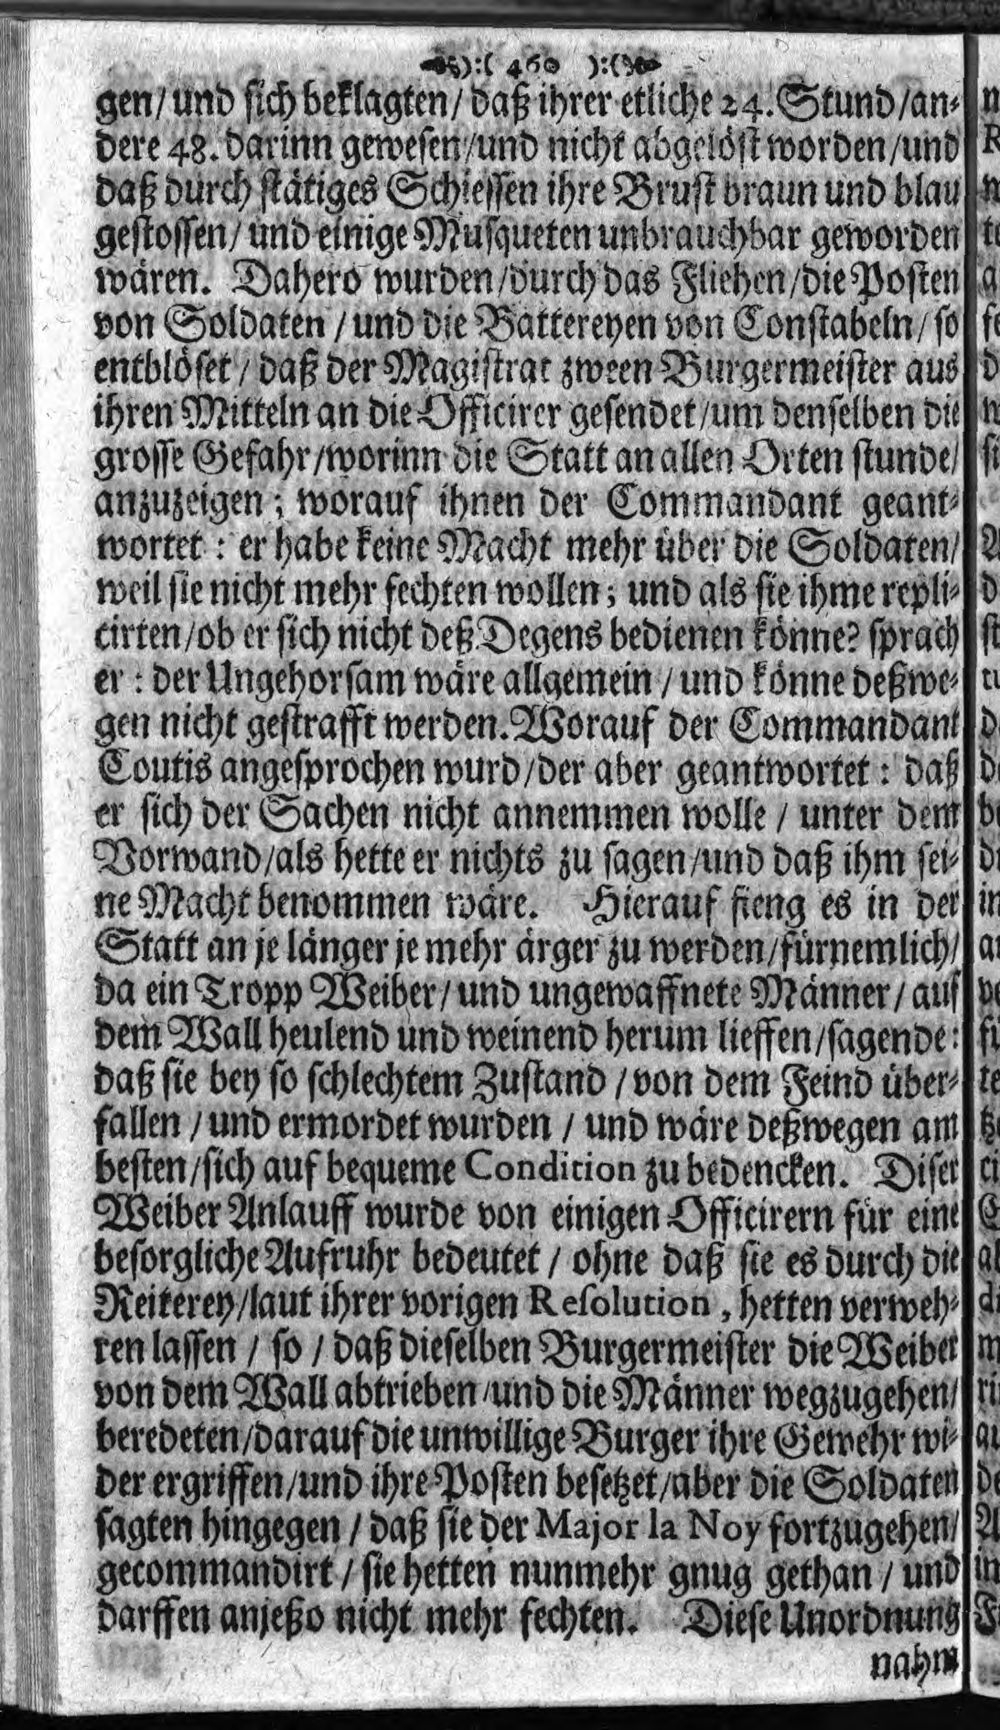 ):( 460 ):(
gen/ und sich beklagten/ daß ihrer etliche 24. Stund/an-
dere 48. darinn gewesen/und nicht abgelöst worden/und
daß durch stätiges Schiessen ihre Brust braun und blau
gestossen/ und einige Musqueten unbrauchbar geworden
wären. Dahero wurden/durch das Fliehen/die Posten
von Soldaten / und die Battereyen von Constabeln/ so
entblöset / daß der Magistrat zween Burgermeister aus
ihren Mitteln an die Officirer gesendet/um denselben die
grosse Gefahr/worinn die Statt an allen Orten stunde/
anzuzeigen; worauf ihnen der Commandant geant-
wortet : er habe keine Macht mehr über die Soldaten/
weil sie nicht mehr fechten wollen; und als sie ihme repli-
cirten/ob er sich nicht deß Degens bedienen könne? sprach
er : der Ungehorsam wäre allgemein / und könne deßwe-
gen nicht gestrafft werden. Worauf der Commandant
Coutis angesprochen wurd/der aber geantwortet : daß
er sich der Sachen nicht annemmen wolle / unter dem
Vorwand/als hette er nichts zu sagen/und daß ihm sei-
ne Macht benommen wäre. Hierauf fieng es in der
Statt an je länger je mehr ärger zu werden/fürnemlich/
da ein Tropp Weiber/ und ungewaffnete Männer/ auf
dem Wall heulend und weinend herum lieffen/sagende:
daß sie bey so schlechtem Zustand / von dem Feind über-
fallen / und ermordet wurden / und wäre deßwegen am
besten/sich auf bequeme Condition zu bedencken. Diser
Weiber Anlauff wurde von einigen Officirern für eine
besorgliche Aufruhr bedeutet / ohne daß sie es durch die
Reiterey/laut ihrer vorigen Resolution, hetten verweh-
ren lassen / so / daß dieselben Burgermeister die Weiber
von dem Wall abtrieben/und die Männer wegzugehen/
beredeten/darauf die unwillige Burger ihre Gewehr wi-
der ergriffen/und ihre Posten besetzet/aber die Soldaten
sagten hingegen / daß sie der Major la Noy fortzugehen/
gecommandirt / sie hetten nunmehr gnug gethan / und
darffen anjetzo nicht mehr fechten. Diese Unordnung
nahm